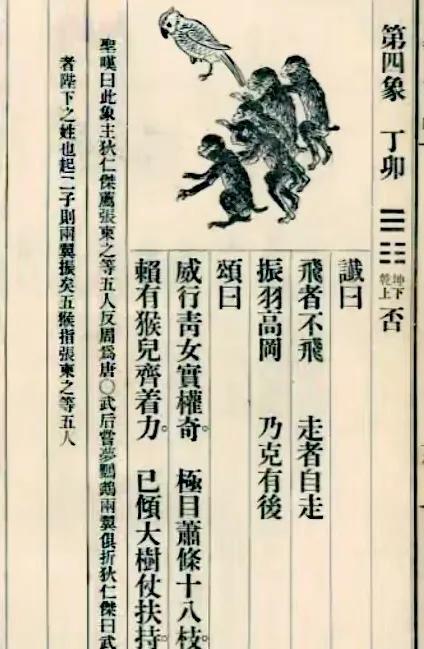 第四象 丁卯 ䷋ 坤下乾上 否
讖曰
飛者不飛 走者自走
振羽高岡 乃克有後
頌曰
威行青女實權奇。 極目蕭條十八枝。
賴有猴兒齊着力。 已傾大樹仗扶持。
聖嘆曰此象主狄仁傑薦張柬之等五人反周爲唐〇武后嘗夢鸚鵡兩翼俱折狄仁傑曰武
者陛下之姓也起二子則兩翼振矣五猴指張柬之等五人